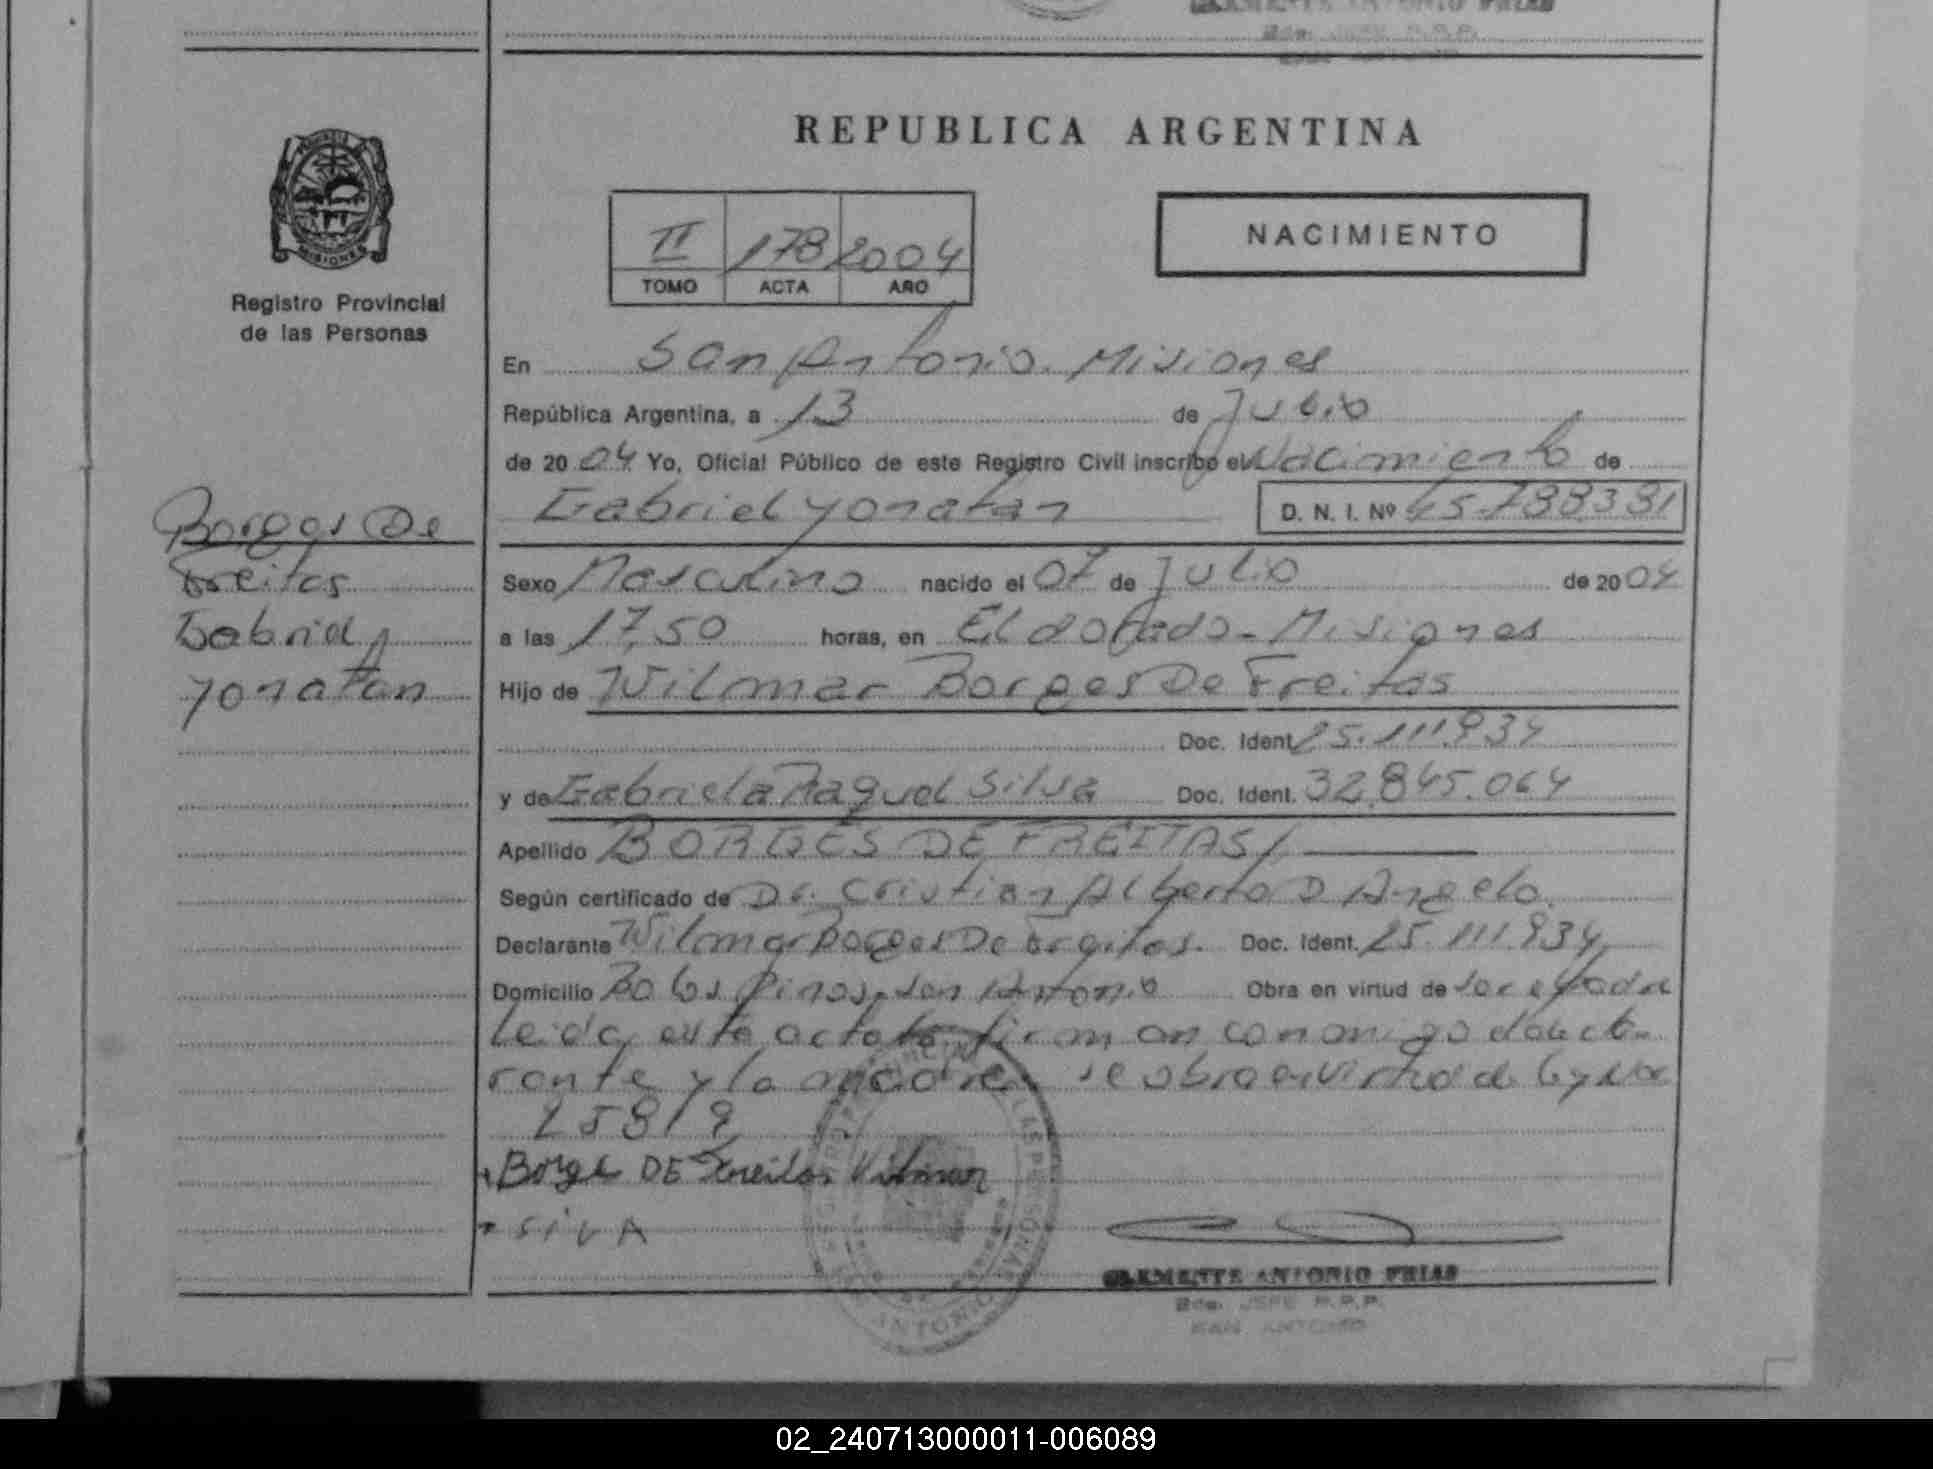 CLEMENTE ANTONIO FRIAS
REPUBLICA ARGENTINA
II 178 2004
TOMO ACTA AÑO
NACIMIENTO
MISIONES
Registro Provincial
de las Personas
En San Antonio. Misiones
República Argentina, a 13 de Julio
de 2004 Yo, Oficial Público de este Registro Civil inscribo el Nacimiento de
Gabriel Yonatan D. N. I. Nº 45.788381
Borges De
Freitas
Gabriel
Yonatan
Sexo Masculino nacido el 07 de Julio de 2004
a las 17,50 horas, en Eldorado - Misiones
Hijo de Wilmar Borges De Freitas
Doc. Ident. 25.111.934
y de Gabriela Raquel Silva Doc. Ident. 32.845.064
Apellido BORGES DE FREITAS/
Según certificado de Dr. Cristian Alberto D Angelo.
Declarante Wilmar Borges De Freitas. Doc. Ident. 25.111.934
Domicilio Bo Los Pinos, San Antonio Obra en virtud de
Leida esta acta la firman conmigo declа-
rante y la madre, se obra en virtud de Ley No
Borge DE Freitas Vilmar
SilvA
CLEMENTE ANTONIO FRIAS
Bdo. JEFE R.P.P.
SAN ANTONIO
02_240713000011-006089